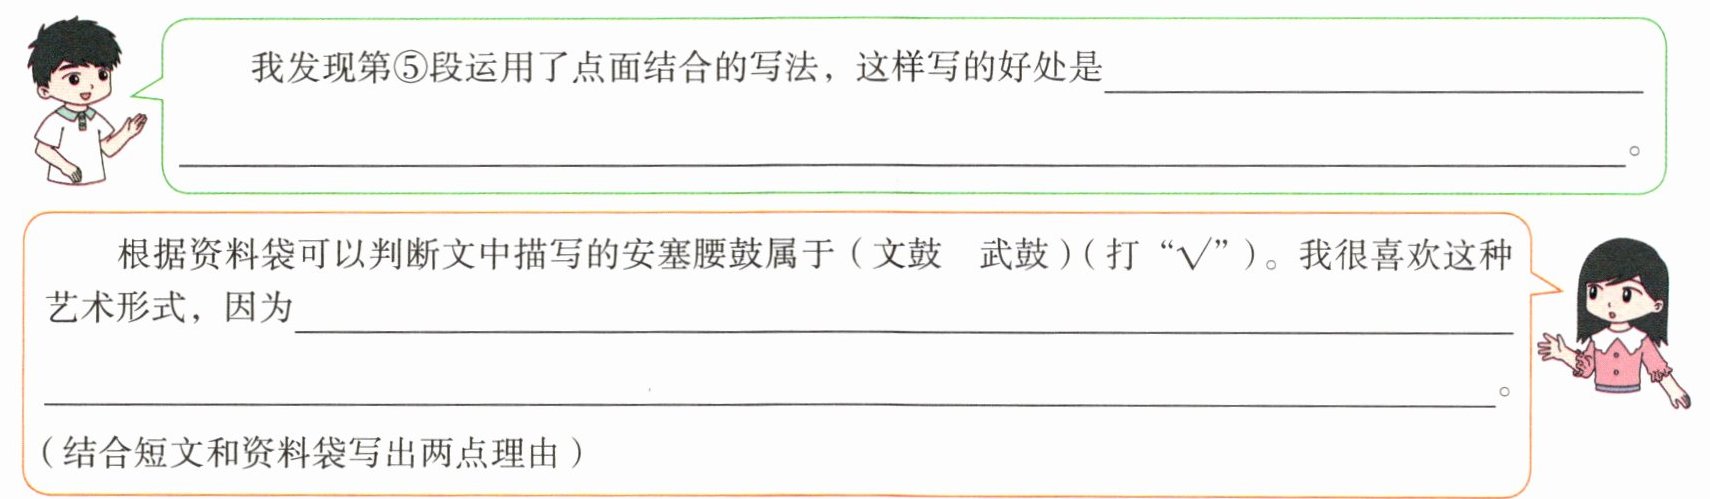 我发现第⑤段运用了点面结合的写法，这样写的好处是
。
根据资料袋可以判断文中描写的安塞腰鼓属于（文鼓　武鼓）（打“√”）。我很喜欢这种
艺术形式，因为
。
（结合短文和资料袋写出两点理由）